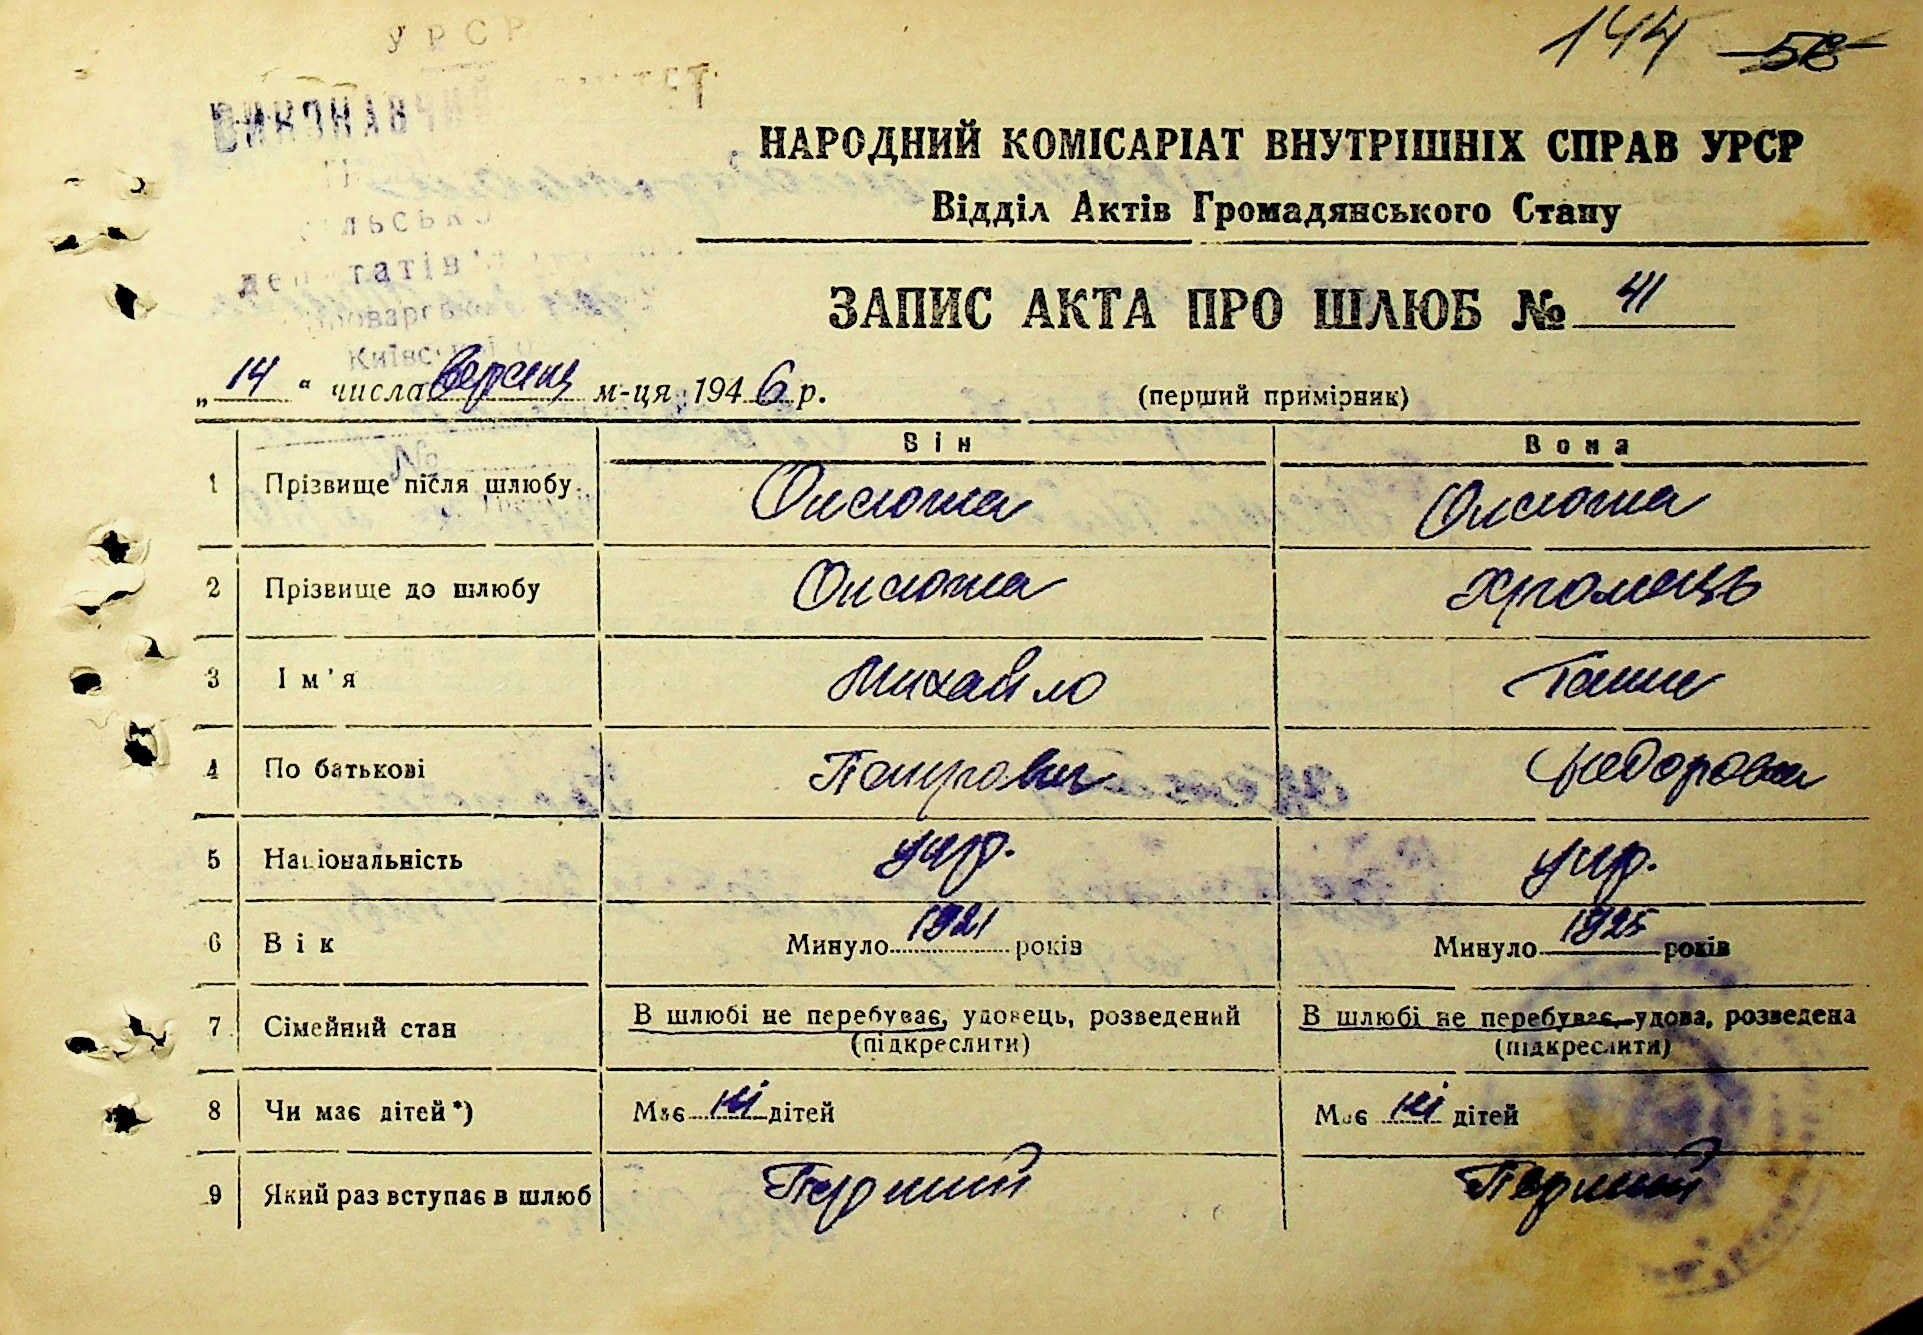 144 58
УРСР
НАРОДНИЙ КОМІСАРІАТ ВНУТРІШНІХ СПРАВ УРСР
Відділ Актів Громадянського Стану
ЗАПИС АКТА ПРО ШЛЮБ № 41
„14“ числа вересня м-ця 1946 р. (перший примірник)
Він Вона
1 Прізвище після шлюбу
2 Прізвище до шлюбу Хромець
3 Ім'я Михайло Ганна
4 По батькові Федоровна
5 Національність укр. укр.
6 Вік Минуло 1921 років Минуло 1925 років
7 Сімейний стан В шлюбі не перебуває, удовець, розведений В шлюбі не перебуває, удова, розведена
(підкреслити) (підкреслити)
8 Чи має дітей*) Має ні дітей Має ні дітей
9 Який раз вступає в шлюб Перший Перший